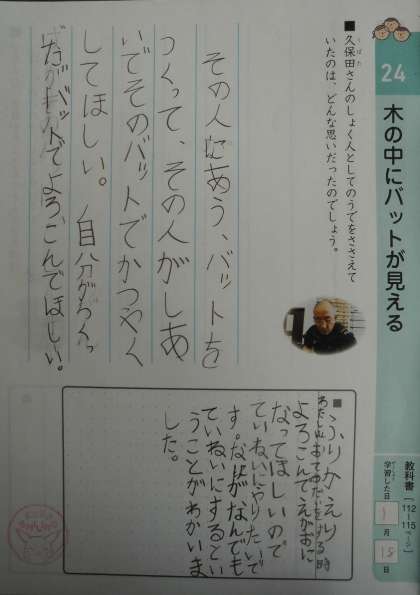 24
木の中にバットが見える
教科書「112~115ページ」
学習した日 1月18日
■久保田さんのしょく人としてのうでをささえて
いたのは、どんな思いだったのでしょう。
その人にあう、バットを
つくって、その人がしあ
いでそのバットでかつやく
してほしい。自分がつくっ
たバットでよろこんでほしい。
■ふりかえり
おてつだいをする時
よろこんでえがおに
なってほしいので
ていねいにやりたいで
す。なんでも
ていねいにするとい
うことがわかりま
した。